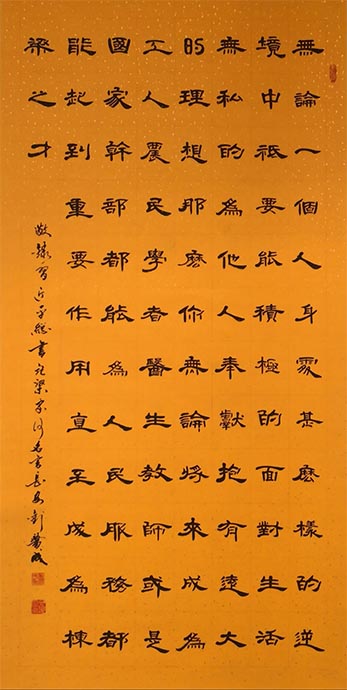 無論一個人身處甚麼樣的逆
境中祇要能積極的面對生活
無私的為他人奉獻抱有遠大
的理想那麼你無論將來成為
工人農民學者醫生教師或是
國家幹部都能為人民服務都
能起到重要作用直至成為棟
梁之才
敬錄習近平總書記梁家河名言長安